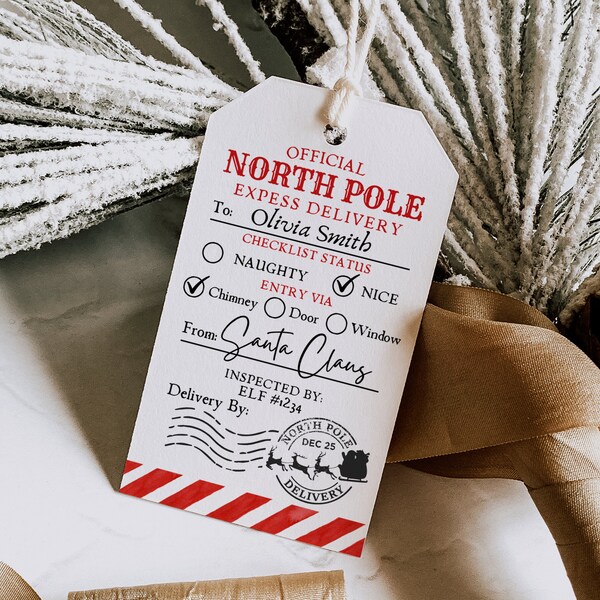 OFFICIAL
NORTH POLE
EXPESS DELIVERY
To: Olivia Smith
CHECKLIST STATUS
NAUGHTY NICE
ENTRY VIA
Chimney Door Window
From: Santa Claus
INSPECTED BY:
ELF #1234
Delivery By:
NORTH POLE
DEC 25
DELIVERY